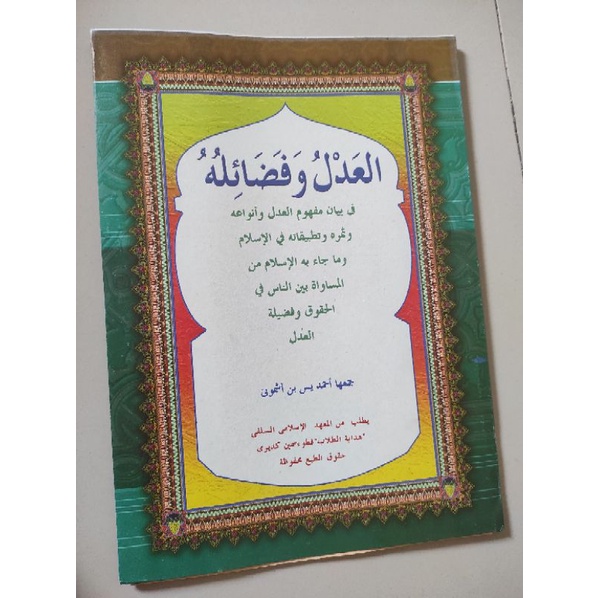 العَدْلُ وَفَضَائِلُهُ
فى بيان مفهوم العدل وأنواعه
وثمره وتطبيقاته في الإسلام
وما جاء به الإسلام من
المساواة بين الناس في
الحقوق وفضيلة
العدل
جمعها أحمد يس بن أسمونى
يطلب من المعهد الإسلامى السلفى
"هداية الطلاب" فطوء سمبن كديرى
حقوق الطبع محفوظة